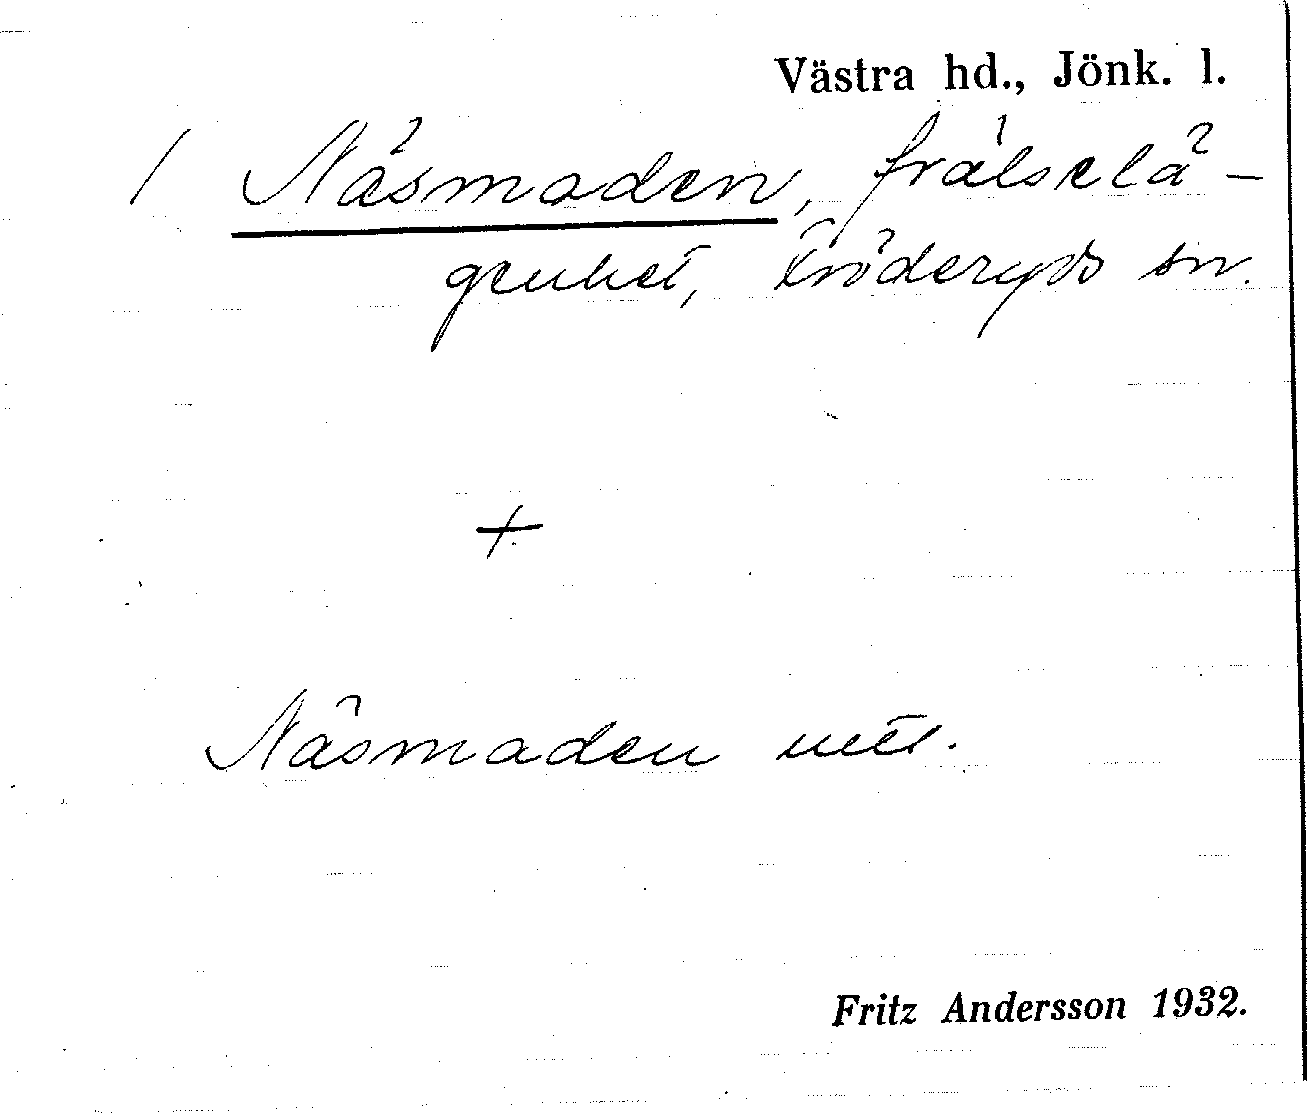 Västra hd., Jönk. l.
/ Näsmaden, frälselä-
genhet, Bröderyds sn.
+
Näsmaden utt.
Fritz Andersson 1932.